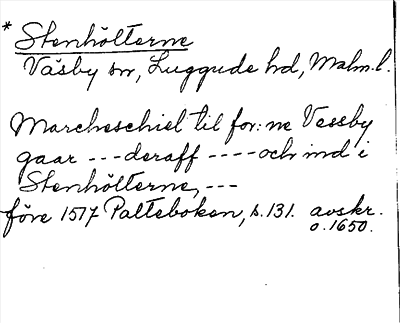 * Stenhölterne
Väsby sn, Luggude hd, Malm. l.
Marcheschiel til for: ne Vessby
gaar --- deraff ---- och ind i
Stenhölterne, ---
före 1577 Palteboken, s. 131. avskr.
o. 1650.